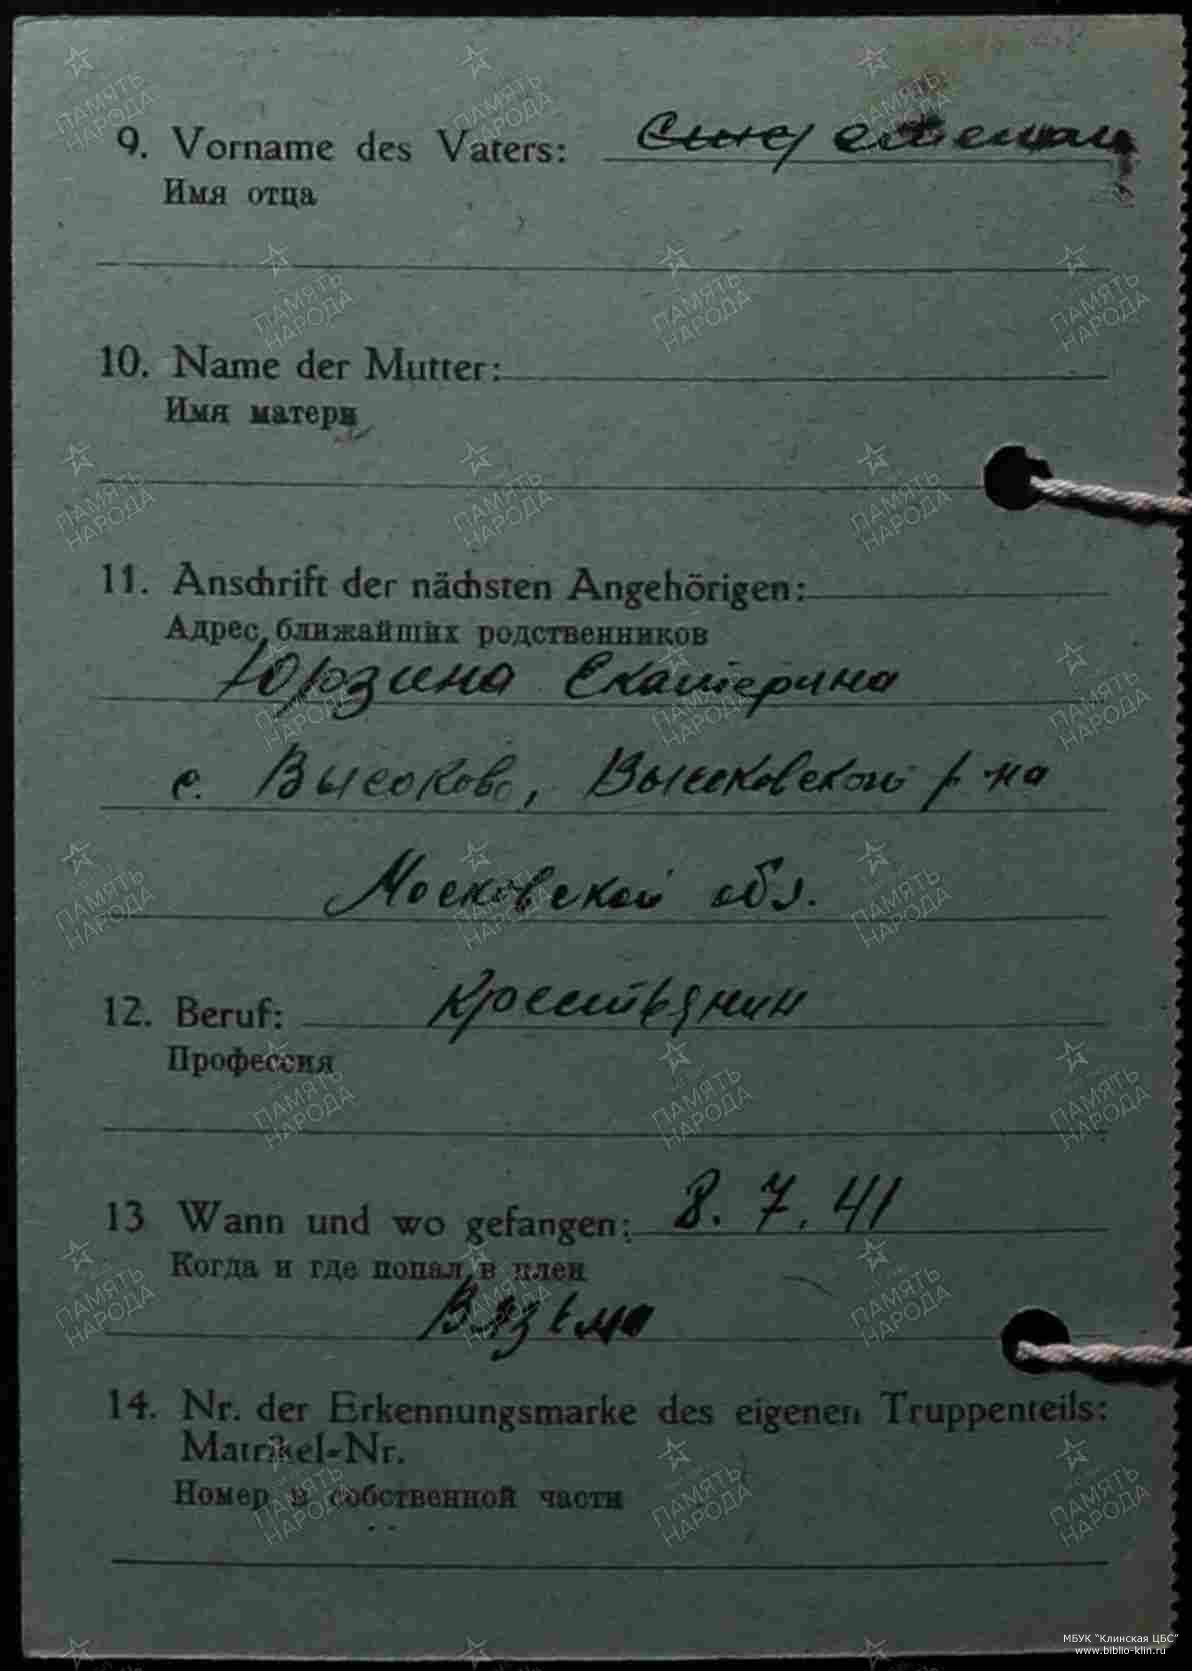 9. Vorname des Vaters:
Имя отца
10. Name der Mutter:
Имя матери
11. Anschrift der nächsten Angehörigen:
Адрес ближайших родственников
Юрзина Екатерина
с. Высоково, Высоковского р-на
Московской обл.
12. Beruf: Крестьянин
Профессия
13 Wann und wo gefangen: 8. 7. 41
Когда и где попал в плен
Вязьма
14. Nr. der Erkennungsmarke des eigenen Truppenteils:
Matrikel-Nr.
Номер в собственной части
ПАМЯТЬ
НАРОДА
МБУК "Клинская ЦБС"
www.biblio-klin.ru